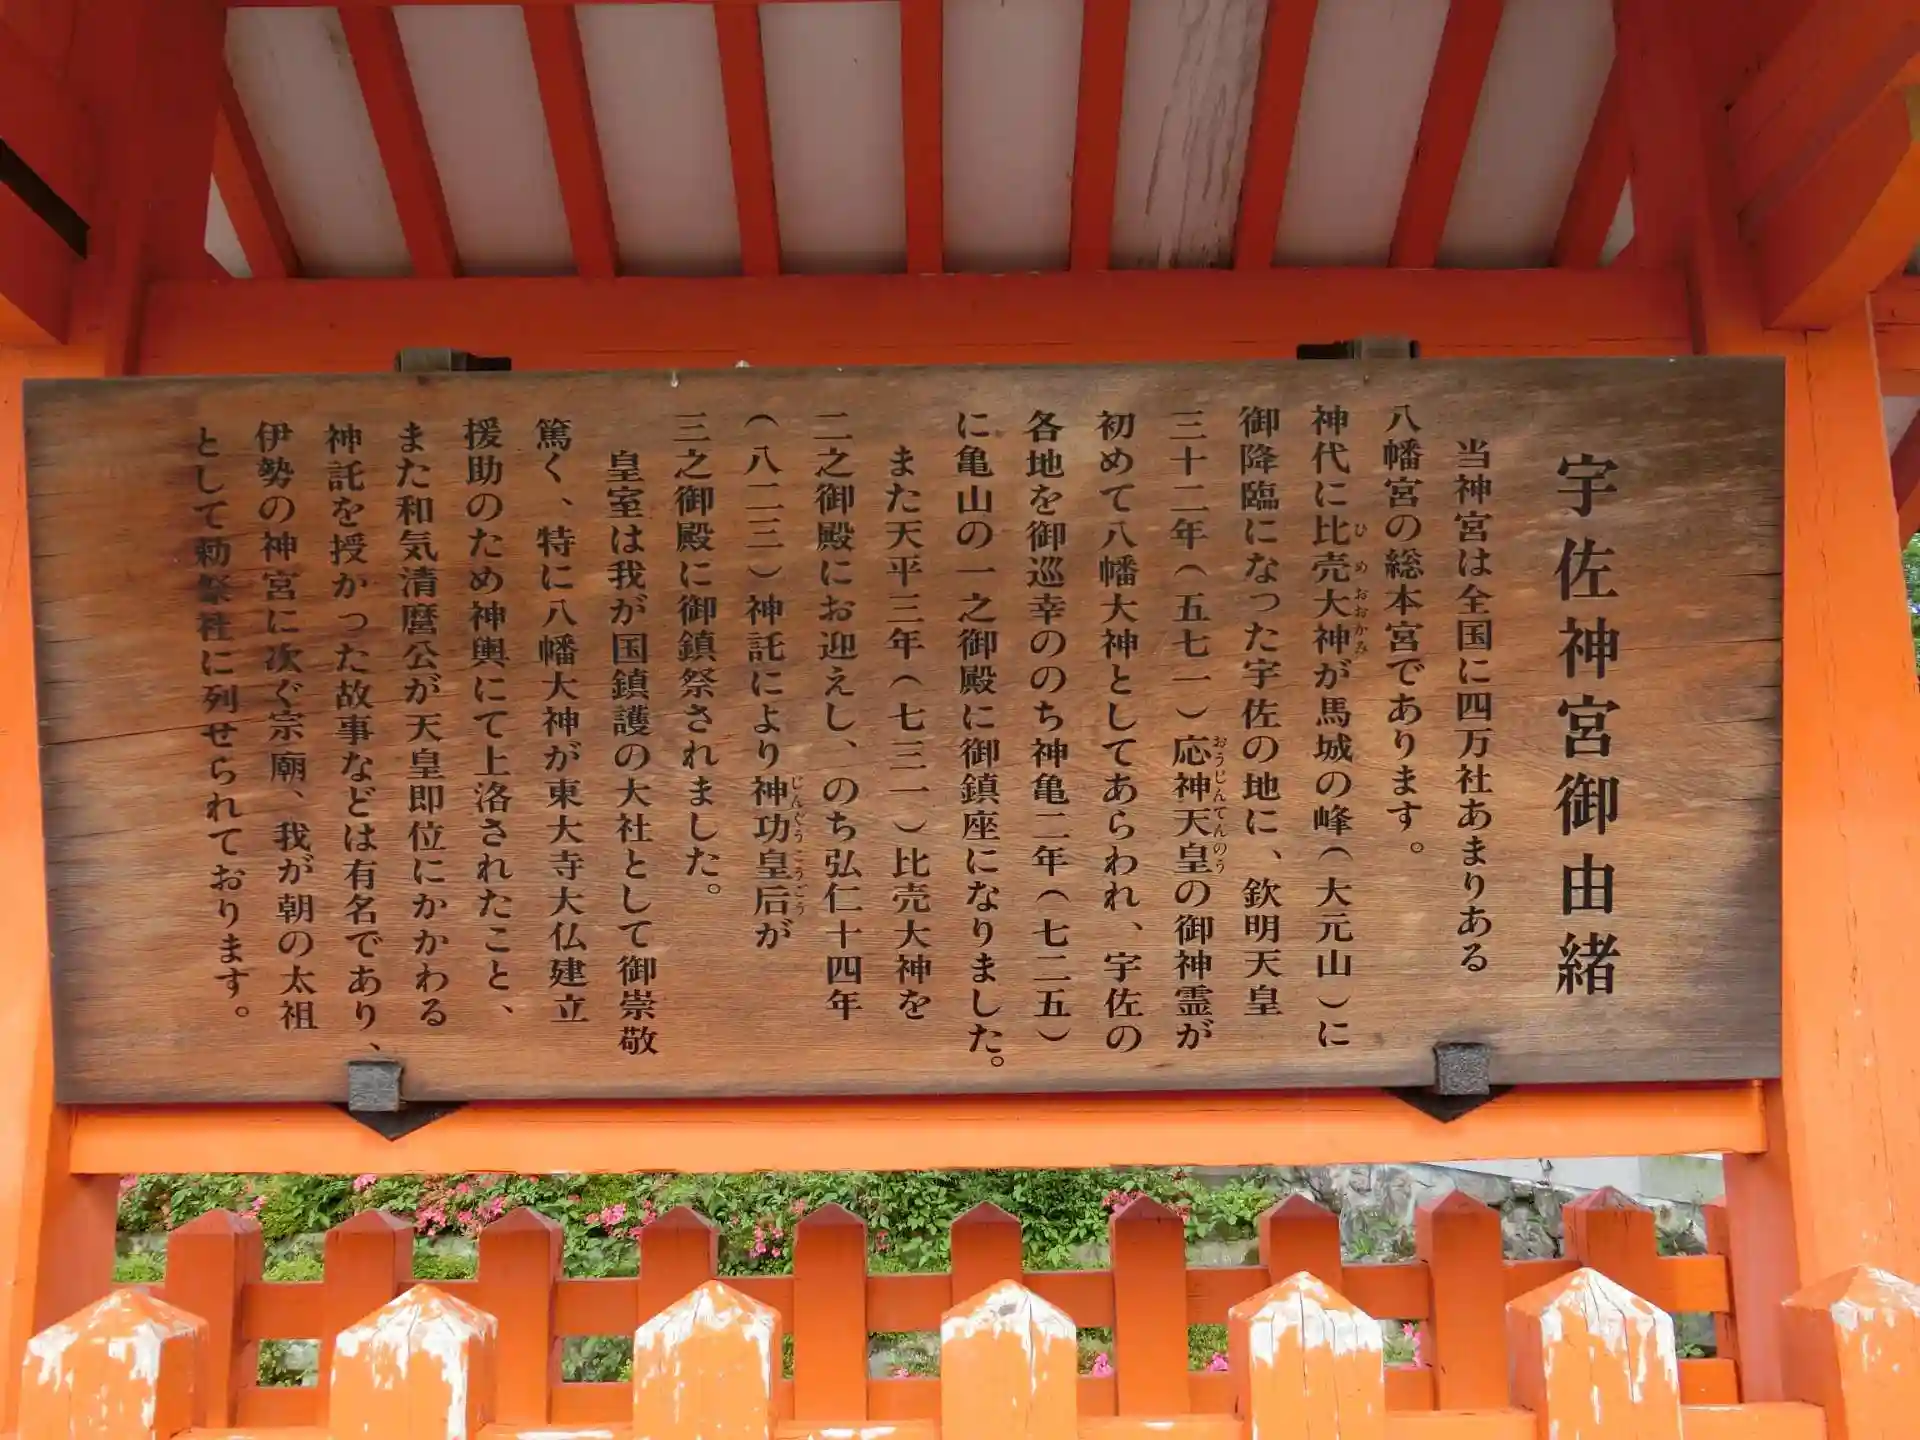 宇佐神宮御由緒
当神宮は全国に四万社あまりある
八幡宮の総本宮であります。
神代に比売大神が馬城の峰(大元山)に
ひめおおかみ
御降臨になった宇佐の地に、欽明天皇
三十二年(五七一)応神天皇の御神霊が
おうじんてんのう
初めて八幡大神としてあらわれ、宇佐の
各地を御巡幸ののち神亀二年(七二五)
に亀山の一之御殿に御鎮座になりました。
また天平三年(七三一)比売大神を
二之御殿にお迎えし、のち弘仁十四年
(八二三)神託により神功皇后が
じんぐうこうごう
三之御殿に御鎮祭されました。
皇室は我が国鎮護の大社として御崇敬
篤く、特に八幡大神が東大寺大仏建立
援助のため神輿にて上洛されたこと、
また和気清麿公が天皇即位にかかわる
神託を授かった故事などは有名であり、
伊勢の神宮に次ぐ宗廟、我が朝の太祖
として勅祭社に列せられております。